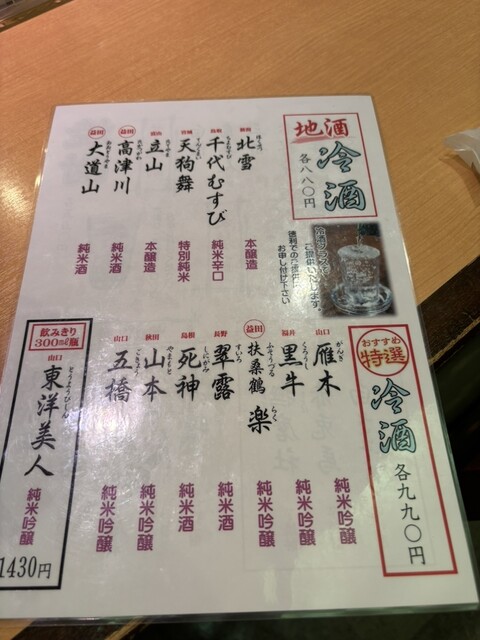 地酒
冷酒
各八八〇円
冷酒グラスで
ご提供いたします。
徳利でのご提供は
お申し付け下さい
新潟
北雪
ほくせつ
本醸造
鳥取
千代むすび
ちよむすび
純米辛口
天狗舞
てんぐまい
特別純米
富山
立山
たてやま
本醸造
益田
高津川
たかつがわ
純米酒
益田
大道山
純米酒
おすすめ
特選
冷酒
各九九〇円
山口
雁木
がんぎ
純米吟醸
福井
黒牛
くろうし
純米吟醸
益田
扶桑鶴 楽
ふそうづる らく
純米吟醸
長野
翠露
すいろ
純米酒
島根
死神
しにがみ
純米酒
秋田
山本
やまもと
純米吟醸
山口
五橋
ごきょう
純米吟醸
飲みきり
300ml瓶
山口
東洋美人
とうようびじん
純米吟醸
1430円